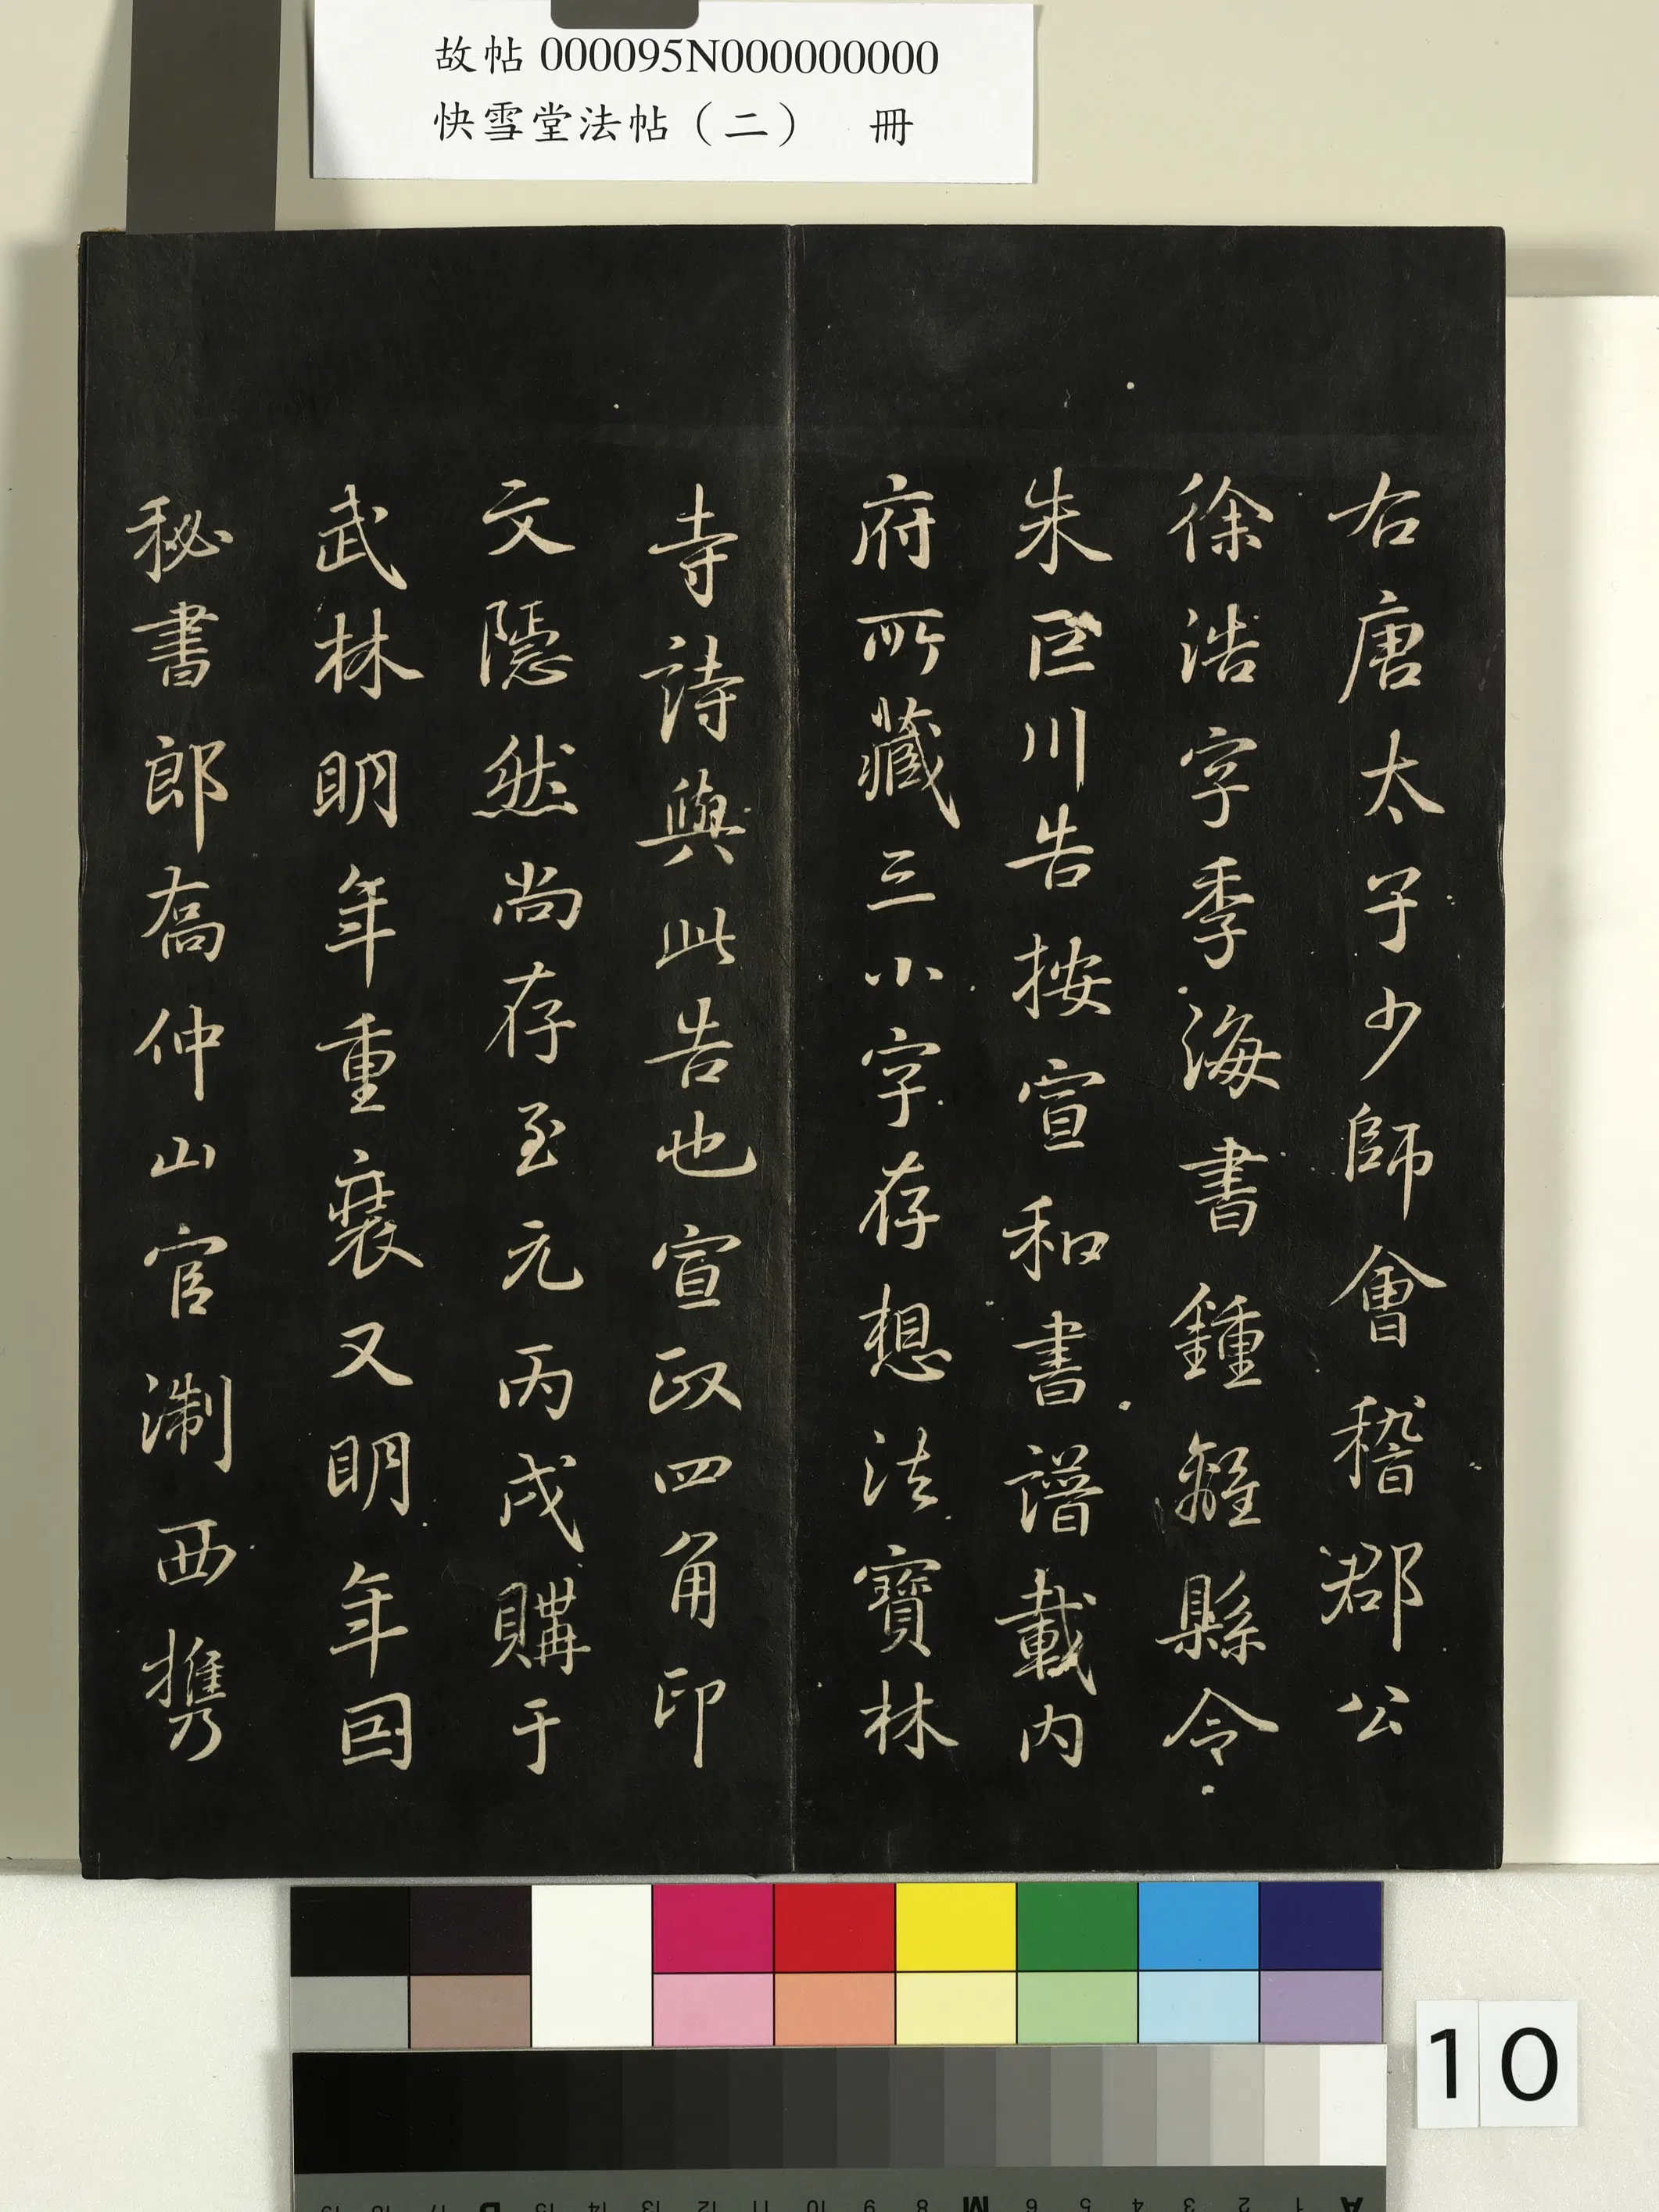 故帖 000095N000000000
快雪堂法帖（二） 冊
右唐太子少師會稽郡公
徐浩字季海書鍾離縣令
朱巨川告按宣和書譜載内
府所藏三小字存想法寶林
寺詩與此告也宣政四角印
文隱然尚存至元丙戌購于
武林明年重裝又明年因
秘書郎喬仲山官淛西攜
10